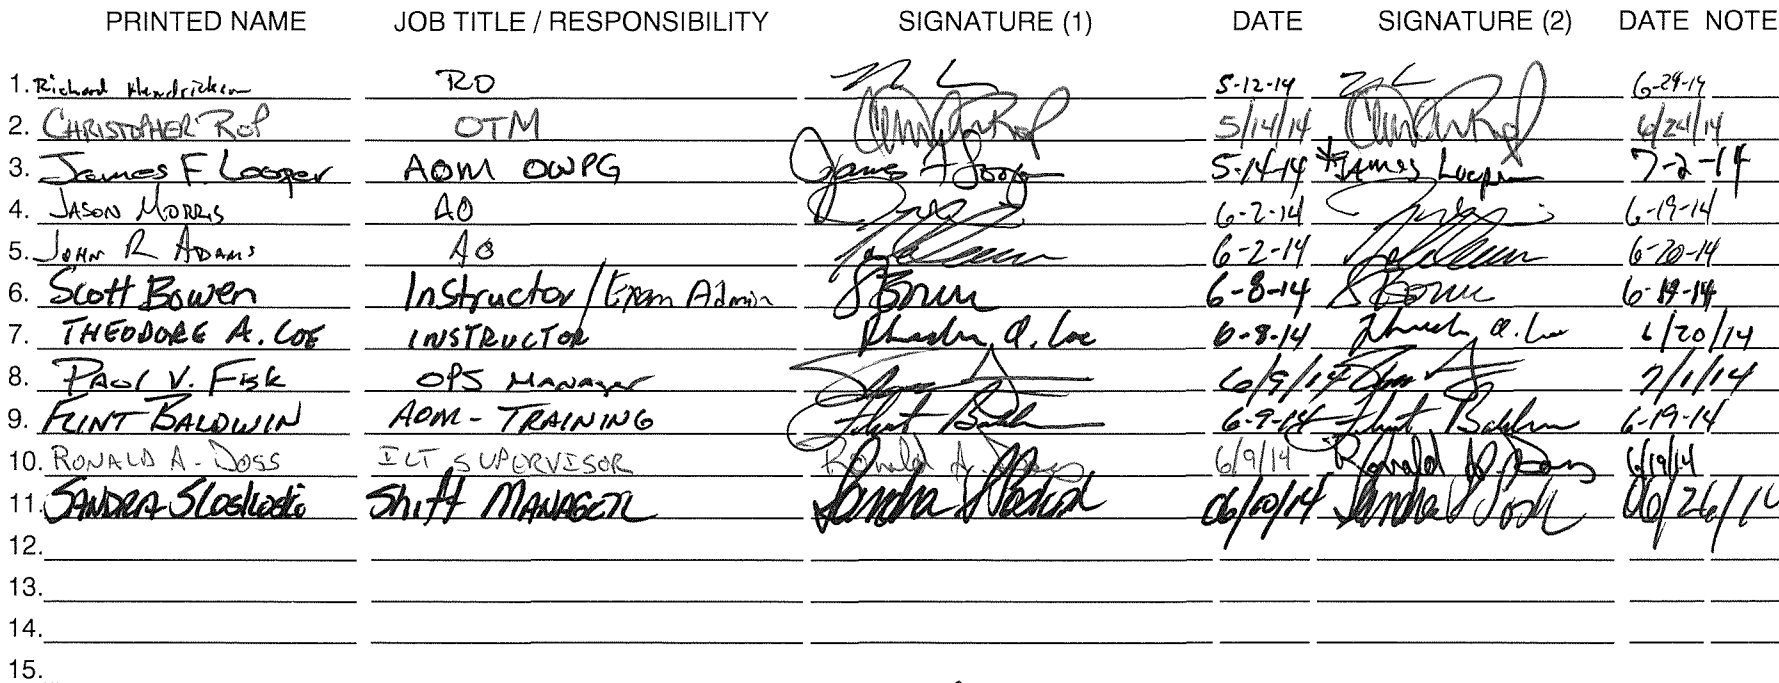 PRINTED NAME JOB TITLE / RESPONSIBILITY SIGNATURE (1) DATE SIGNATURE (2) DATE NOTE
1. Richard Hendrickson RO 5-12-14 6-24-14
2. CHRISTOPHER ROP OTM 5/14/14 6/24/14
3. James F. Looper AOM OWPG James F Looper 5-14-14 *James Looper 7-2-14
4. JASON MORRIS AO 6-2-14 6-19-14
5. JOHN R ADAMS AO 6-2-14 6-20-14
6. Scott Bowen Instructor/Exam Admin S Bowen 6-8-14 S Bowen 6-19-14
7. THEODORE A. COE INSTRUCTOR Theodore A. Coe 6-8-14 Theodore A. Coe 6/20/14
8. PAUL V. FISK OPS MANAGER 6/9/14 7/1/14
9. FLINT BALDWIN AOM - TRAINING Flint Baldwin 6-9-14 Flint Baldwin 6-19-14
10. RONALD A. DOSS ILT SUPERVISOR Ronald A. Doss 6/9/14 Ronald A. Doss 6/19/14
11. SANDRA Shift MANAGER Sandra 06/10/14 Sandra 06/26/14
12.
13.
14.
15.